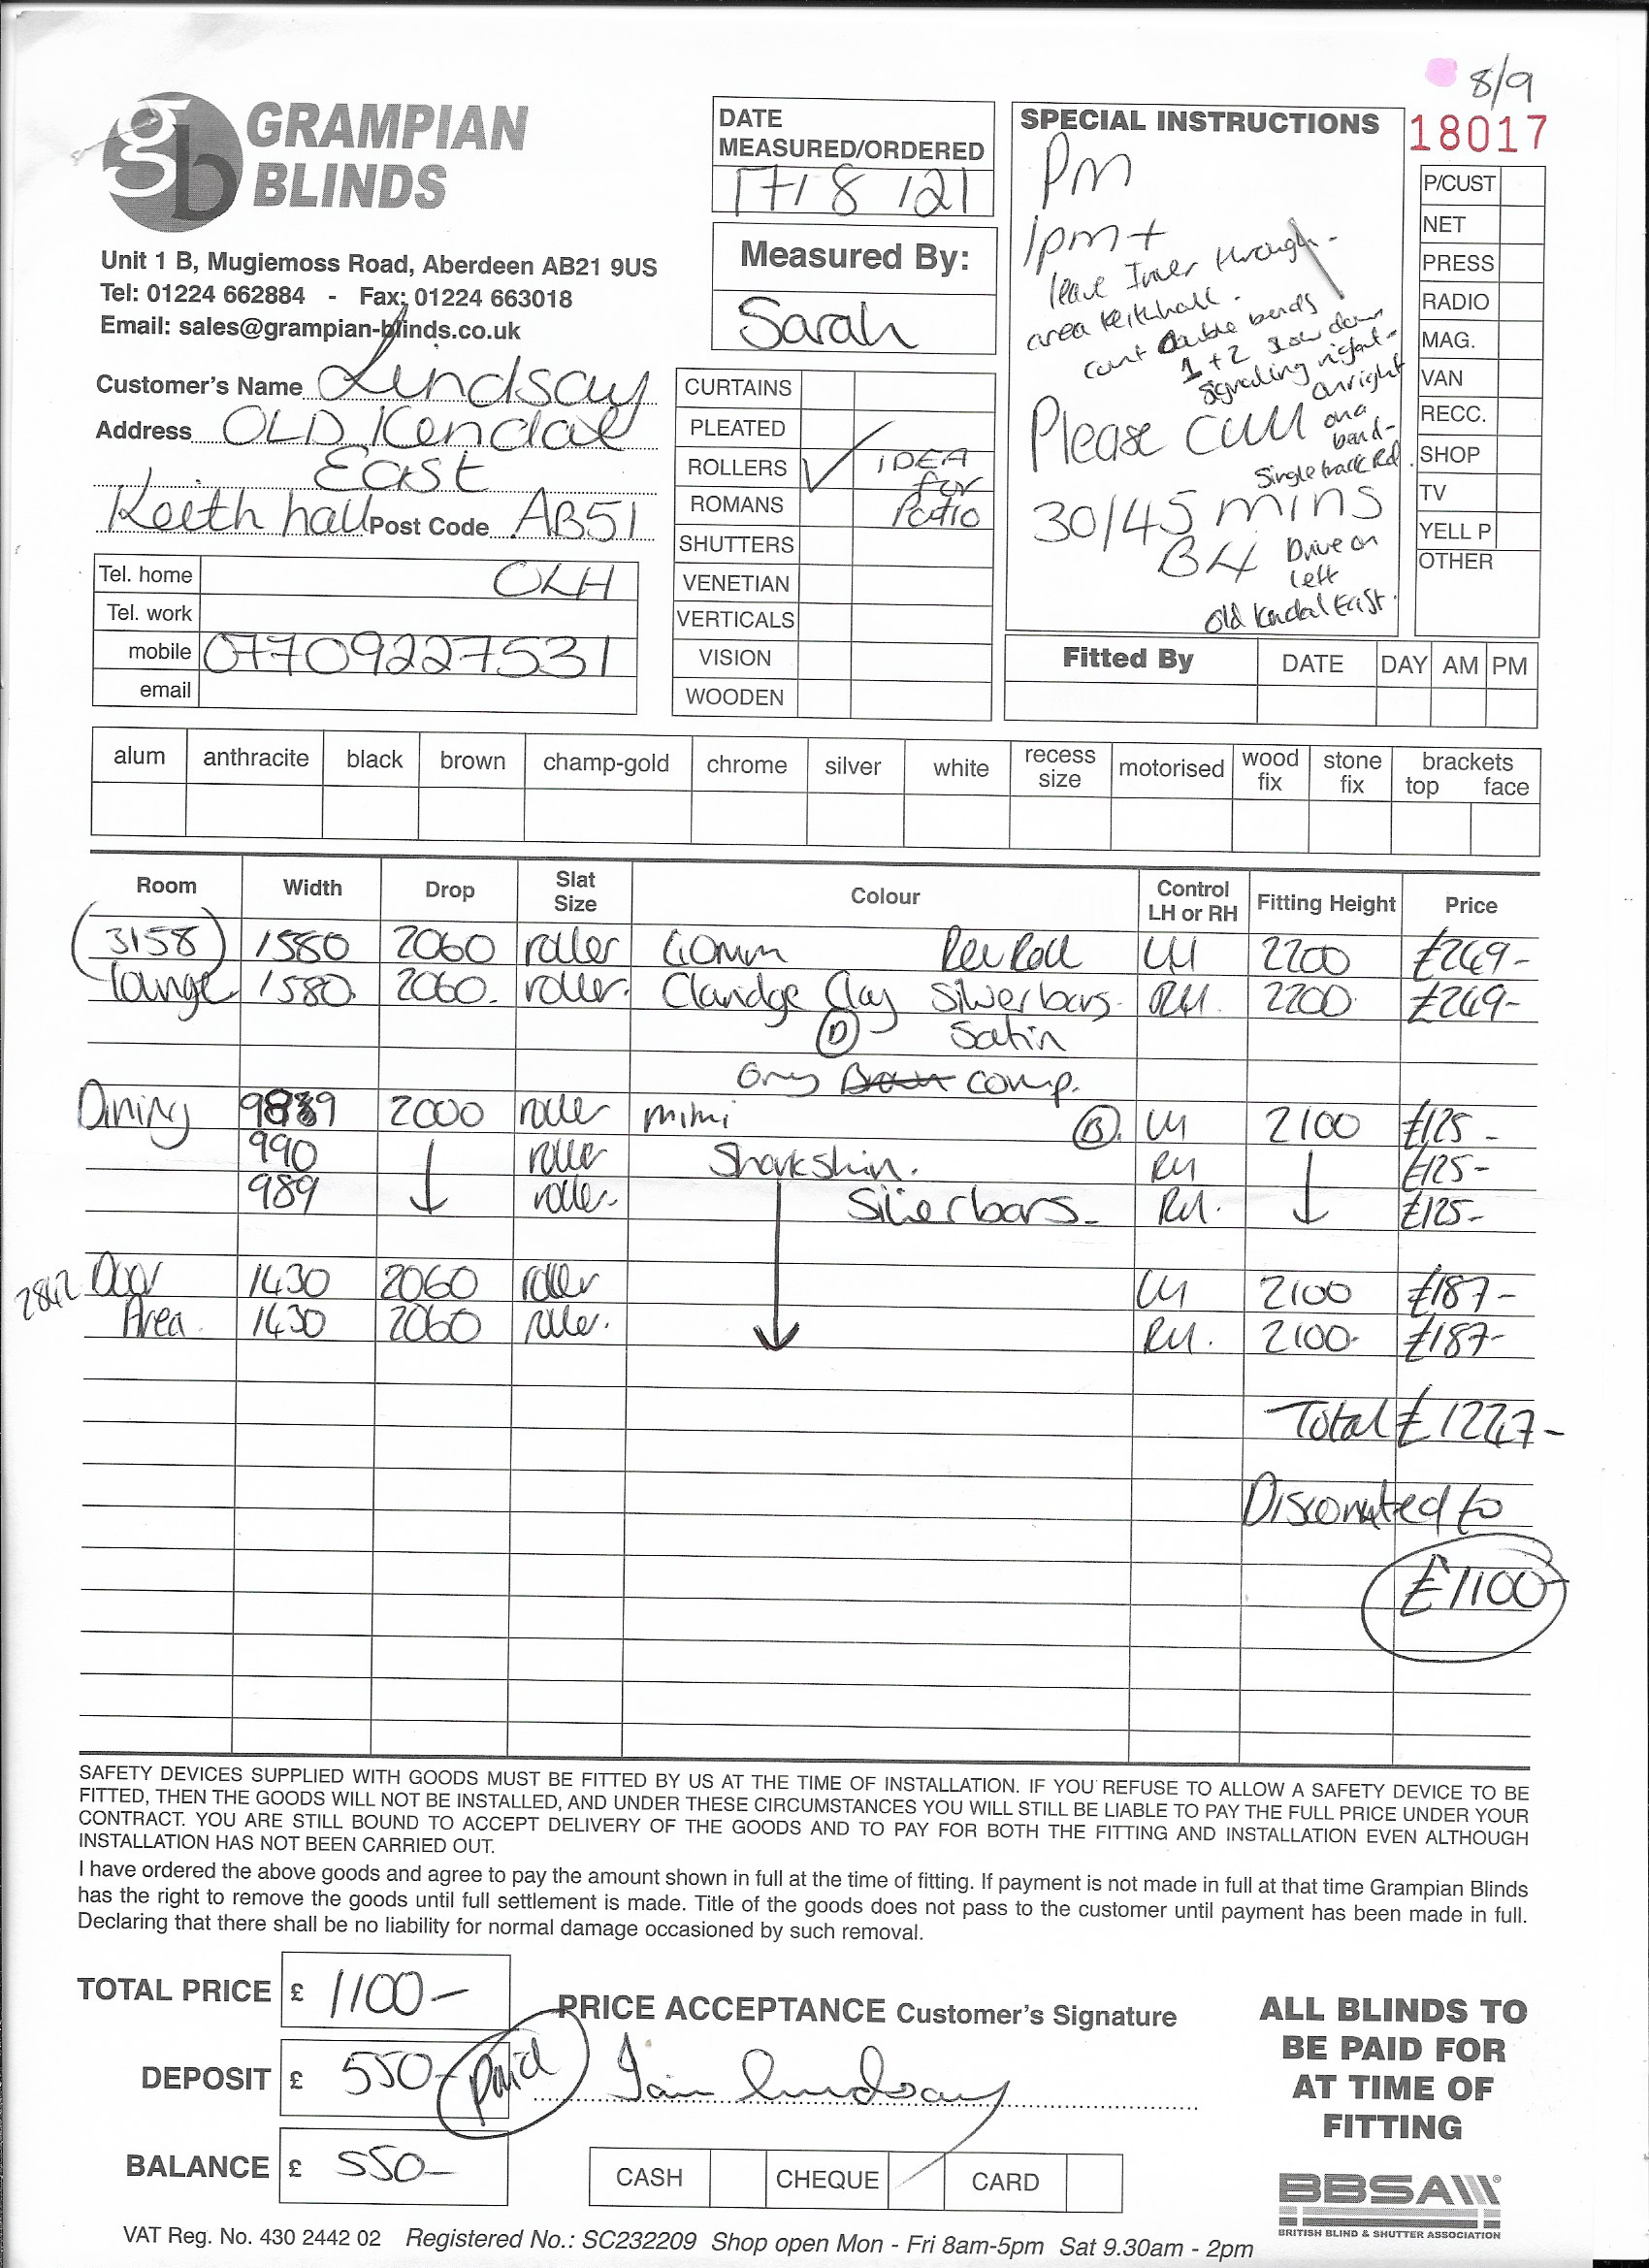 8/9
18017
GRAMPIAN
BLINDS
Unit 1 B, Mugiemoss Road, Aberdeen AB21 9US
Tel: 01224 662884 - Fax: 01224 663018
Email: sales@grampian-blinds.co.uk
Customer's Name Lindsay
Address OLD Kendal
East
Keith hall Post Code AB51
Tel. home OLH
Tel. work
mobile 07709227531
email
DATE
MEASURED/ORDERED
17/8/21
Measured By:
Sarah
CURTAINS
PLEATED
ROLLERS ✓ IDEA
for
Patio
ROMANS
SHUTTERS
VENETIAN
VERTICALS
VISION
WOODEN
SPECIAL INSTRUCTIONS
Pm
1pm +
leave Inver through
area Keithhall.
count double bends
1 + 2 slow down
signaling right
on right
on a
bend-
Single track Rd.
Please call
30/45 mins
B4
Drive on
left
Old Kendal East.
P/CUST
NET
PRESS
RADIO
MAG.
VAN
RECC.
SHOP
TV
YELL P
OTHER
Fitted By DATE DAY AM PM
alum anthracite black brown champ-gold chrome silver white recess size motorised wood fix stone fix brackets top face
Room Width Drop Slat Size Colour Control LH or RH Fitting Height Price
3158 1580 2060 roller 40mm Rev Roll LH 2200 £249-
lounge 1580 2060 roller. Claridge Clay Silver bars. RH. 2200 £249-
D Satin
Grey comp.
Dining 989 2000 roller mimi B. LH 2100 £125-
990 roller Sharkskin. RH £125-
989 roller. Silver bars. RH. £125-
2842 Door 1430 2060 roller LH 2100 £187-
Area. 1430 2060 roller. RH. 2100 £187-
Total £1247-
Discounted to
£1100-
SAFETY DEVICES SUPPLIED WITH GOODS MUST BE FITTED BY US AT THE TIME OF INSTALLATION. IF YOU REFUSE TO ALLOW A SAFETY DEVICE TO BE
FITTED, THEN THE GOODS WILL NOT BE INSTALLED, AND UNDER THESE CIRCUMSTANCES YOU WILL STILL BE LIABLE TO PAY THE FULL PRICE UNDER YOUR
CONTRACT. YOU ARE STILL BOUND TO ACCEPT DELIVERY OF THE GOODS AND TO PAY FOR BOTH THE FITTING AND INSTALLATION EVEN ALTHOUGH
INSTALLATION HAS NOT BEEN CARRIED OUT.
I have ordered the above goods and agree to pay the amount shown in full at the time of fitting. If payment is not made in full at that time Grampian Blinds
has the right to remove the goods until full settlement is made. Title of the goods does not pass to the customer until payment has been made in full.
Declaring that there shall be no liability for normal damage occasioned by such removal.
TOTAL PRICE £ 1100-
DEPOSIT £ 550- paid
BALANCE £ 550-
PRICE ACCEPTANCE Customer's Signature
Iain Lindsay
CASH CHEQUE CARD
ALL BLINDS TO
BE PAID FOR
AT TIME OF
FITTING
BBSA
BRITISH BLIND & SHUTTER ASSOCIATION
VAT Reg. No. 430 2442 02 Registered No.: SC232209 Shop open Mon - Fri 8am-5pm Sat 9.30am - 2pm